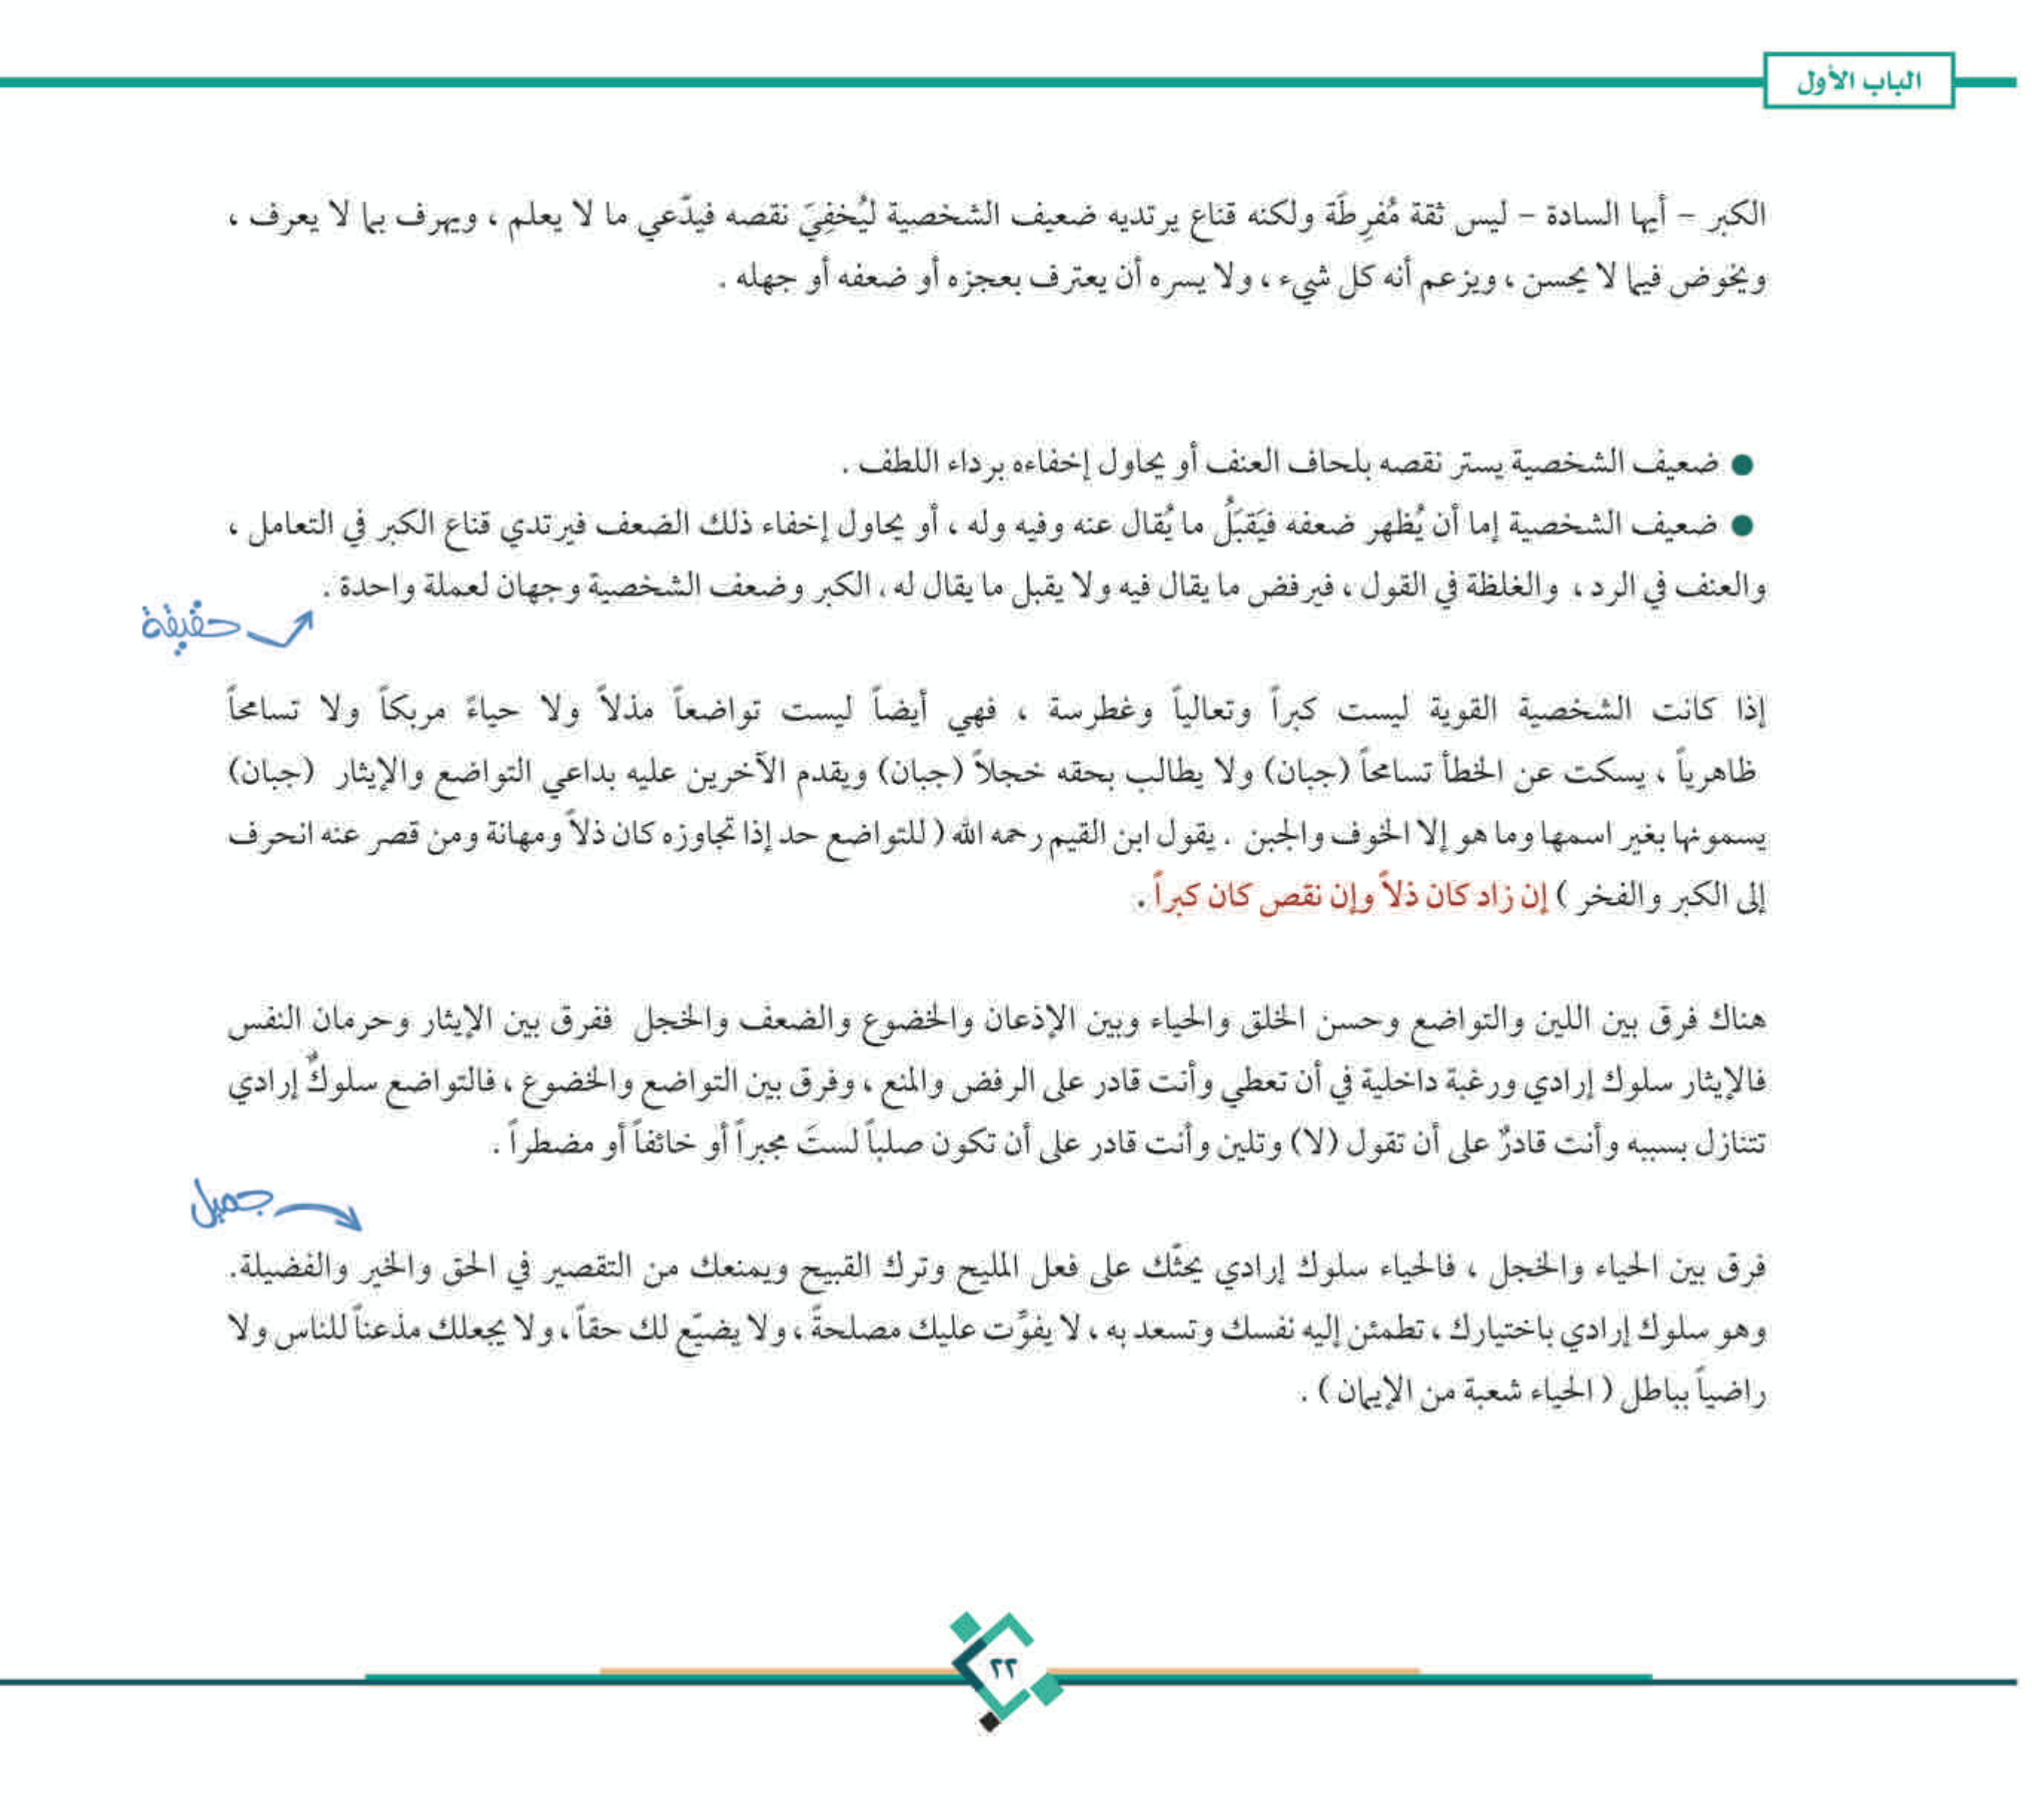 الباب الأول
الكبر – أيها السادة – ليس ثقة مُفرِطَة ولكنه قناع يرتديه ضعيف الشخصية ليُخفِيَ نقصه فيدّعي ما لا يعلم ، ويهرف بما لا يعرف ،
ويخوض فيما لا يحسن ، ويزعم أنه كل شيء ، ولا يسره أن يعترف بعجزه أو ضعفه أو جهله .
● ضعيف الشخصية يستر نقصه بلحاف العنف أو يحاول إخفاءه برداء اللطف .
● ضعيف الشخصية إما أن يُظهر ضعفه فيَقبَلُ ما يُقال عنه وفيه وله ، أو يحاول إخفاء ذلك الضعف فيرتدي قناع الكبر في التعامل ،
والعنف في الرد ، والغلظة في القول ، فيرفض ما يقال فيه ولا يقبل ما يقال له . الكبر وضعف الشخصية وجهان لعملة واحدة .
حقيقة
إذا كانت الشخصية القوية ليست كبراً وتعالياً وغطرسة ، فهي أيضاً ليست تواضعاً مذلاً ولا حياءً مربكاً ولا تسامحاً
ظاهرياً ، يسكت عن الخطأ تسامحاً (جبان) ولا يطالب بحقه خجلاً (جبان) ويقدم الآخرين عليه بداعي التواضع والإيثار (جبان)
يسمونها بغير اسمها وما هو إلا الخوف والجبن . يقول ابن القيم رحمه الله ( للتواضع حد إذا تجاوزه كان ذلاً ومهانة ومن قصر عنه انحرف
إلى الكبر والفخر ) إن زاد كان ذلاً وإن نقص كان كبراً .
هناك فرق بين اللين والتواضع وحسن الخلق والحياء وبين الإذعان والخضوع والضعف والخجل ففرق بين الإيثار وحرمان النفس
فالإيثار سلوك إرادي ورغبة داخلية في أن تعطي وأنت قادر على الرفض والمنع ، وفرق بين التواضع والخضوع ، فالتواضع سلوكٌ إرادي
تتنازل بسببه وأنت قادرٌ على أن تقول (لا) وتلين وأنت قادر على أن تكون صلباً لستَ مجبراً أو خائفاً أو مضطراً .
جميل
فرق بين الحياء والخجل ، فالحياء سلوك إرادي يحثّك على فعل المليح وترك القبيح ويمنعك من التقصير في الحق والخير والفضيلة.
وهو سلوك إرادي باختيارك ، تطمئن إليه نفسك وتسعد به ، لا يفوِّت عليك مصلحةً ، ولا يضيّع لك حقاً ، ولا يجعلك مذعناً للناس ولا
راضياً بباطل ( الحياء شعبة من الإيمان ) .
٢٢